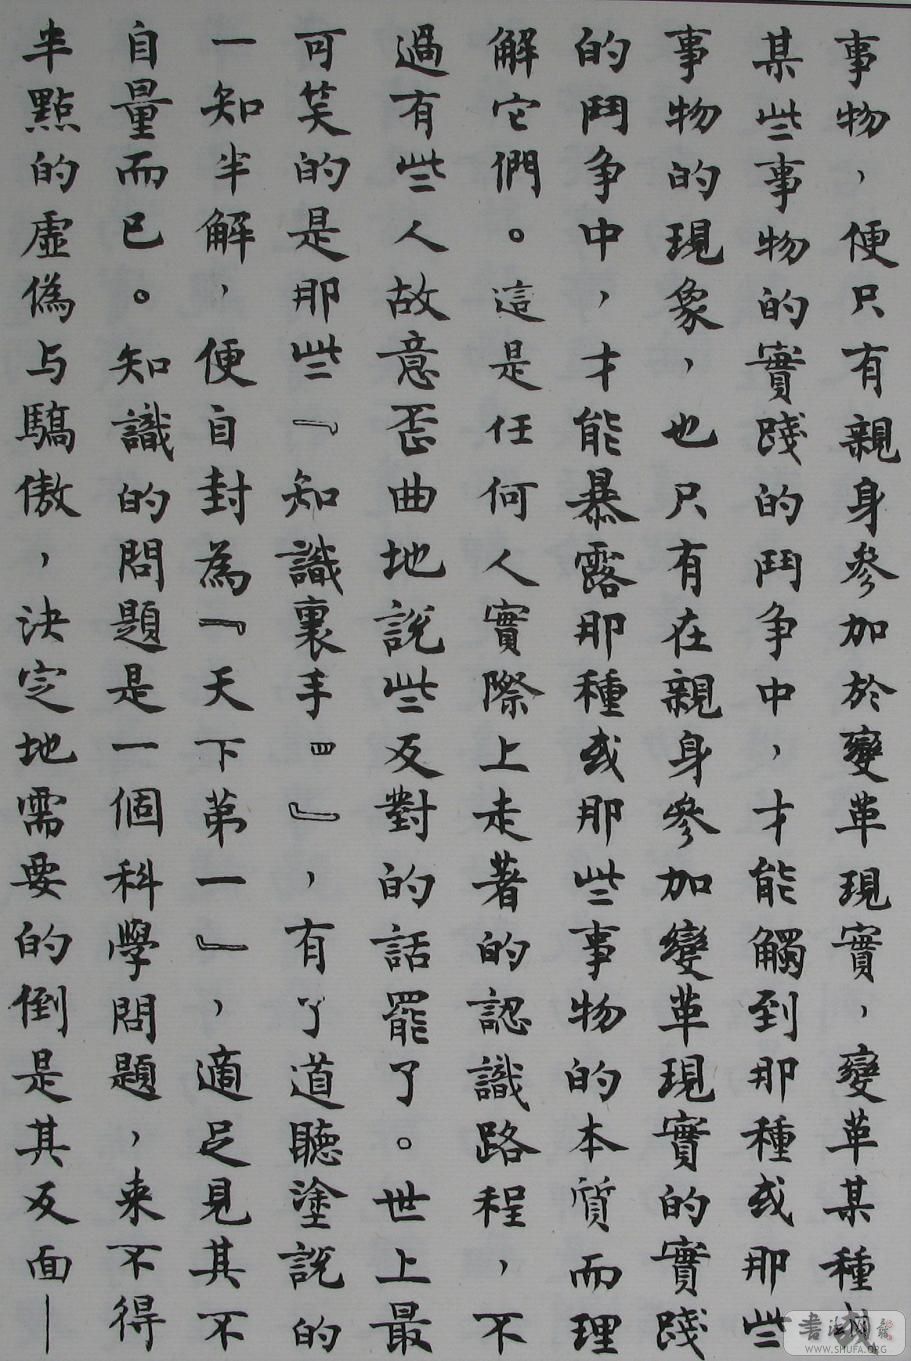 事物，便只有親身參加於變革現實，變革某種或
某些事物的實踐的鬥爭中，才能觸到那種或那些
事物的現象，也只有在親身參加變革現實的實踐
的鬥爭中，才能暴露那種或那些事物的本質而理
解它們。這是任何人實際上走著的認識路程，不
過有些人故意歪曲地說些反對的話罷了。世上最
可笑的是那些『知識裏手四』，有了道聽塗說的
一知半解，便自封為『天下第一』，適足見其不
自量而已。知識的問題是一個科學問題，来不得
半點的虛偽与驕傲，決定地需要的倒是其反面—
書法網
WWW.SHUFA.ORG